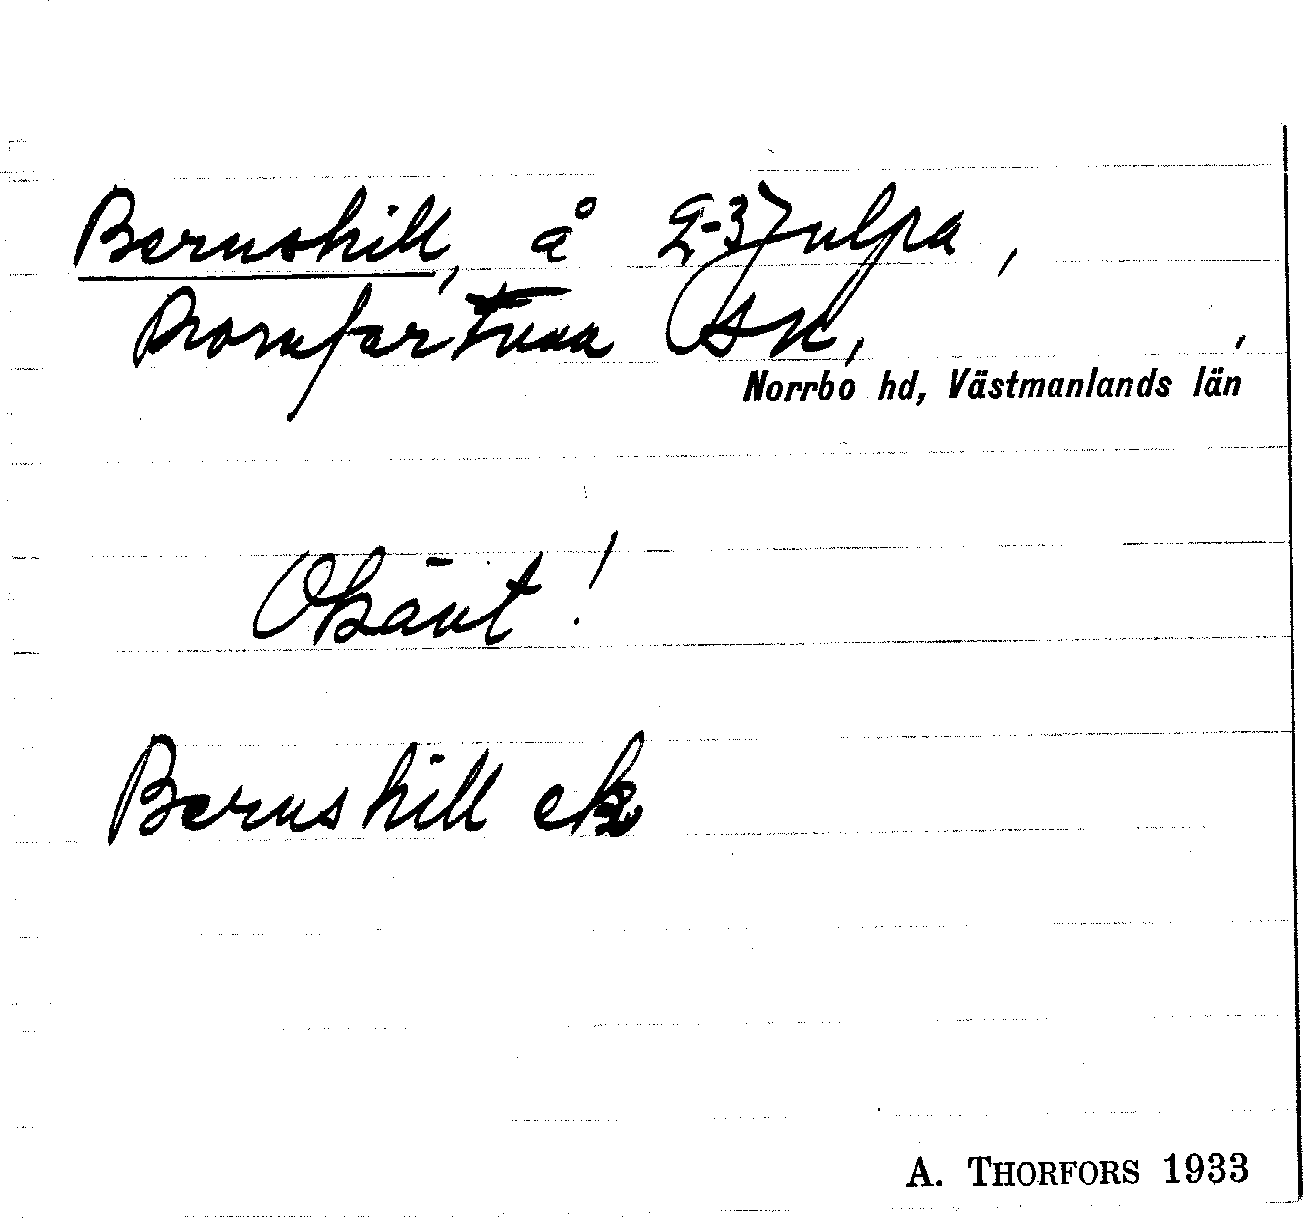 Bernshill, å 2-3 Julpa,
Romfartuna sn, ,
Norrbo hd, Västmanlands län
Okänt!
Bernshill ek
A. THORFORS 1933